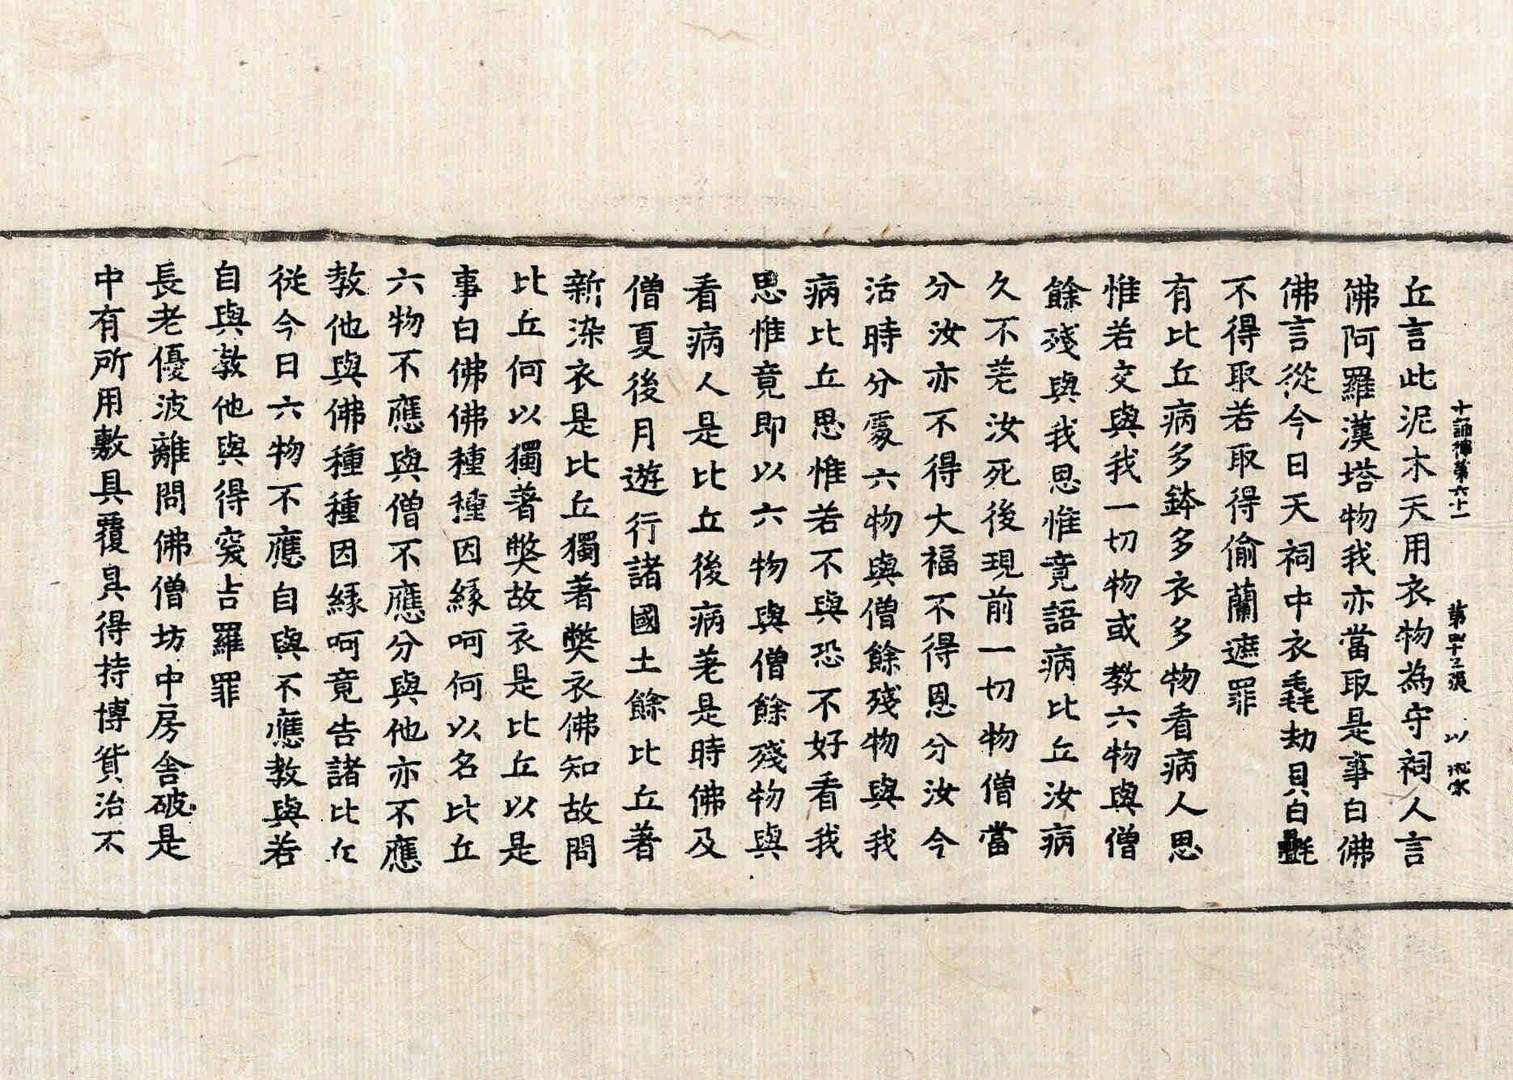 十誦律第六十一　第四十三張　以
丘言此泥木天用衣物為守祠人言
佛阿羅漢塔物我亦當取是事白佛
佛言從今日天祠中衣毳劫貝白㲲
不得取若取得偷蘭遮罪
有比丘病多鉢多衣多物看病人思
惟若交與我一切物或教六物與僧
餘殘與我思惟竟語病比丘汝病
久不差汝死後現前一切物僧當
分汝亦不得大福不得恩分汝今
活時分處六物與僧餘殘物與我
病比丘思惟若不與恐不好看我
思惟竟即以六物與僧餘殘物與
看病人是比丘後病差是時佛及
僧夏後月遊行諸國土餘比丘著
新染衣是比丘獨著弊衣佛知故問
比丘何以獨著弊故衣是比丘以是
事白佛佛種種因緣呵何以名比丘
六物不應與僧不應分與他亦不應
教他與佛種種因緣呵竟告諸比丘
從今日六物不應自與不應教與若
自與教他與得突吉羅罪
長老優波離問佛僧坊中房舍破是
中有所用敷具覆具得持博貨治不